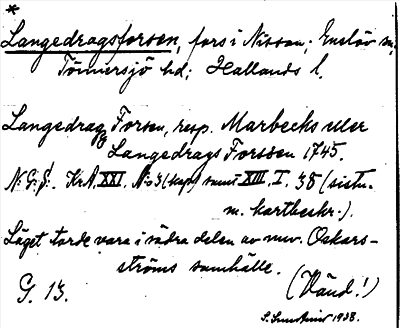 *
Langedragsforsen, fors i Nissan; Enslöv sn,
Tönnersjö hd; Hallands l.
Langedragz Forsen, resp. Marbecks eller
Langedrags Forssen 1745.
N:G:s! Kr.A. XXI. No 3 (kap) samt XIII. I. 38 (sistn.
m. kartbeskr.).
Läget torde vara i södra delen av nuv. Oskars-
ströms samhälle.
G. 13.
(Vänd!)
1938.